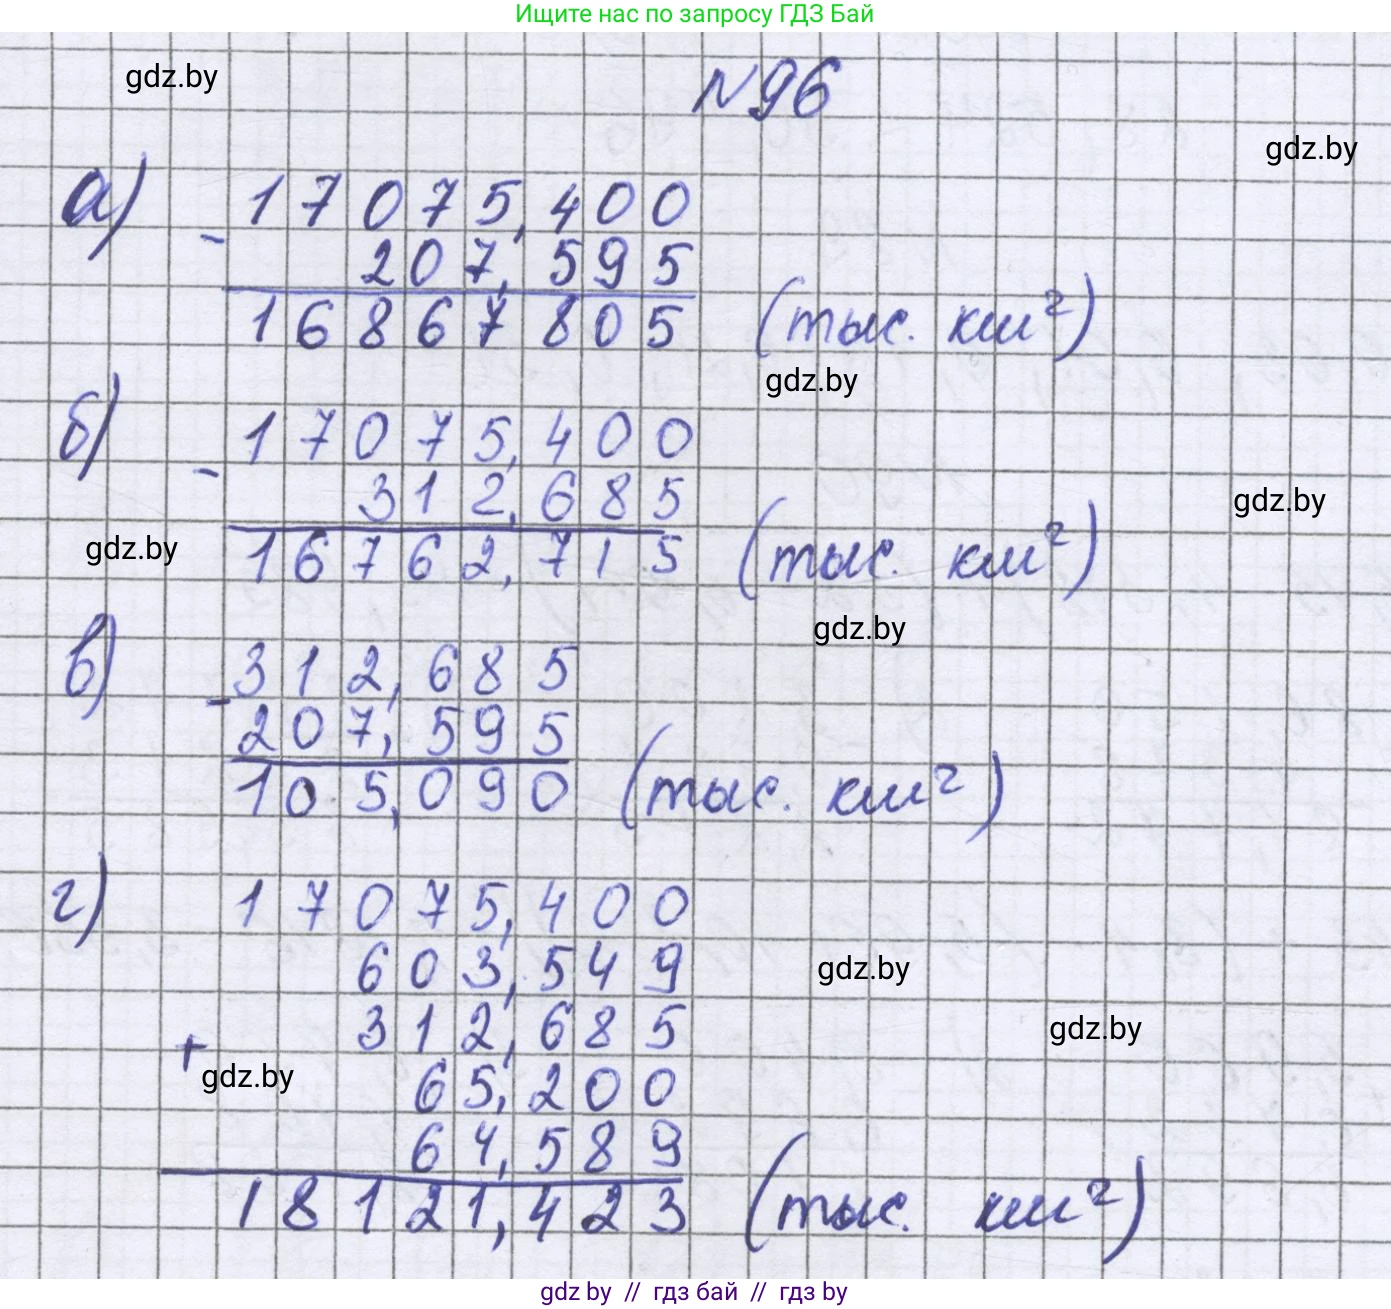 Ищите нас по запросу ГДЗ Бай
gdz.by
N96
gdz.by
а) 17075,400
- 207,595
16867805 (тыс. км²)
gdz.by
б) 17075,400
- 312,685
gdz.by
16762,715 (тыс. км²)
gdz.by
gdz.by
в) 312,685
- 207,595
105,090 (тыс. км²)
г) 17075,400
603,549
gdz.by
312,685
gdz.by
+
gdz.by
65,200
64,589
18121,423 (тыс. км²)
gdz by // гдз бай // гдз by